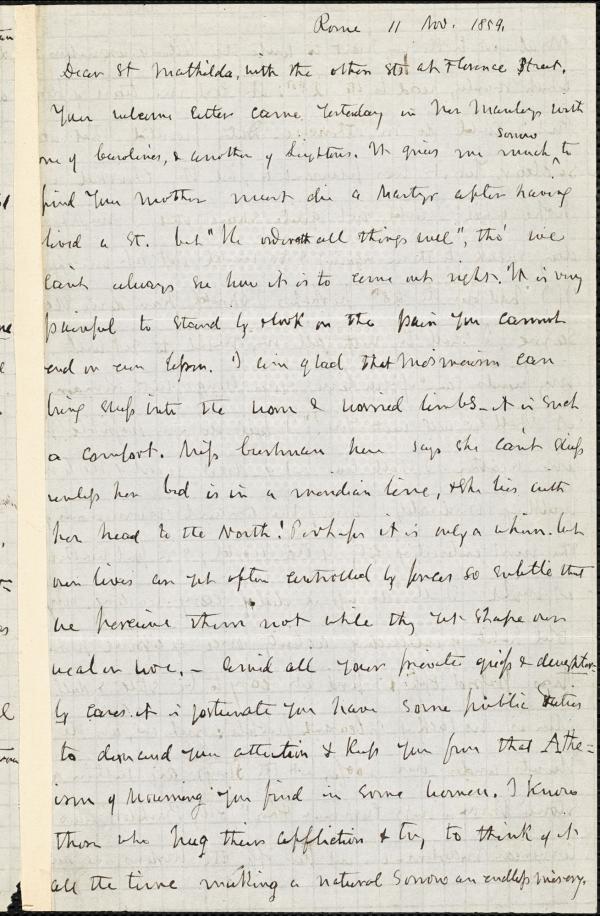 Rome 11 Nov. 1859.
Dear St Mathilda, with the other Sts at Florence Street.
Your welcome letter came yesterday in Her Manleys with
one of Carolines, & another of Leightons. It gives me much sorrow to
find your mother must die a Martyr after having
lived a St. but "He ordereth all things well", tho' we
can't always see how it is to come out right. It is very
painful to stand by & look on the pain you cannot
end or even lessen. I am glad that Mesmerism can
bring sleep into the worn & worried limbs_ it is such
a comfort. Miss Cushman here says she can't sleep
unless her bed is in a meridian line, & she lies with
her head to the North! Perhaps it is only a whim. but
our lives are yet often controlled by forces so subtle that
we perceive them not while they yet shape our
weal or woe. – Amid all your private griefs & daughter-
ly cares it is fortunate you have some public duties
to demand your attention & keep you from that Athe=
ism of Mourning you find in some women. I know
those who hug their affliction & try to think of it
all the time making a natural sorrow an endless misery.